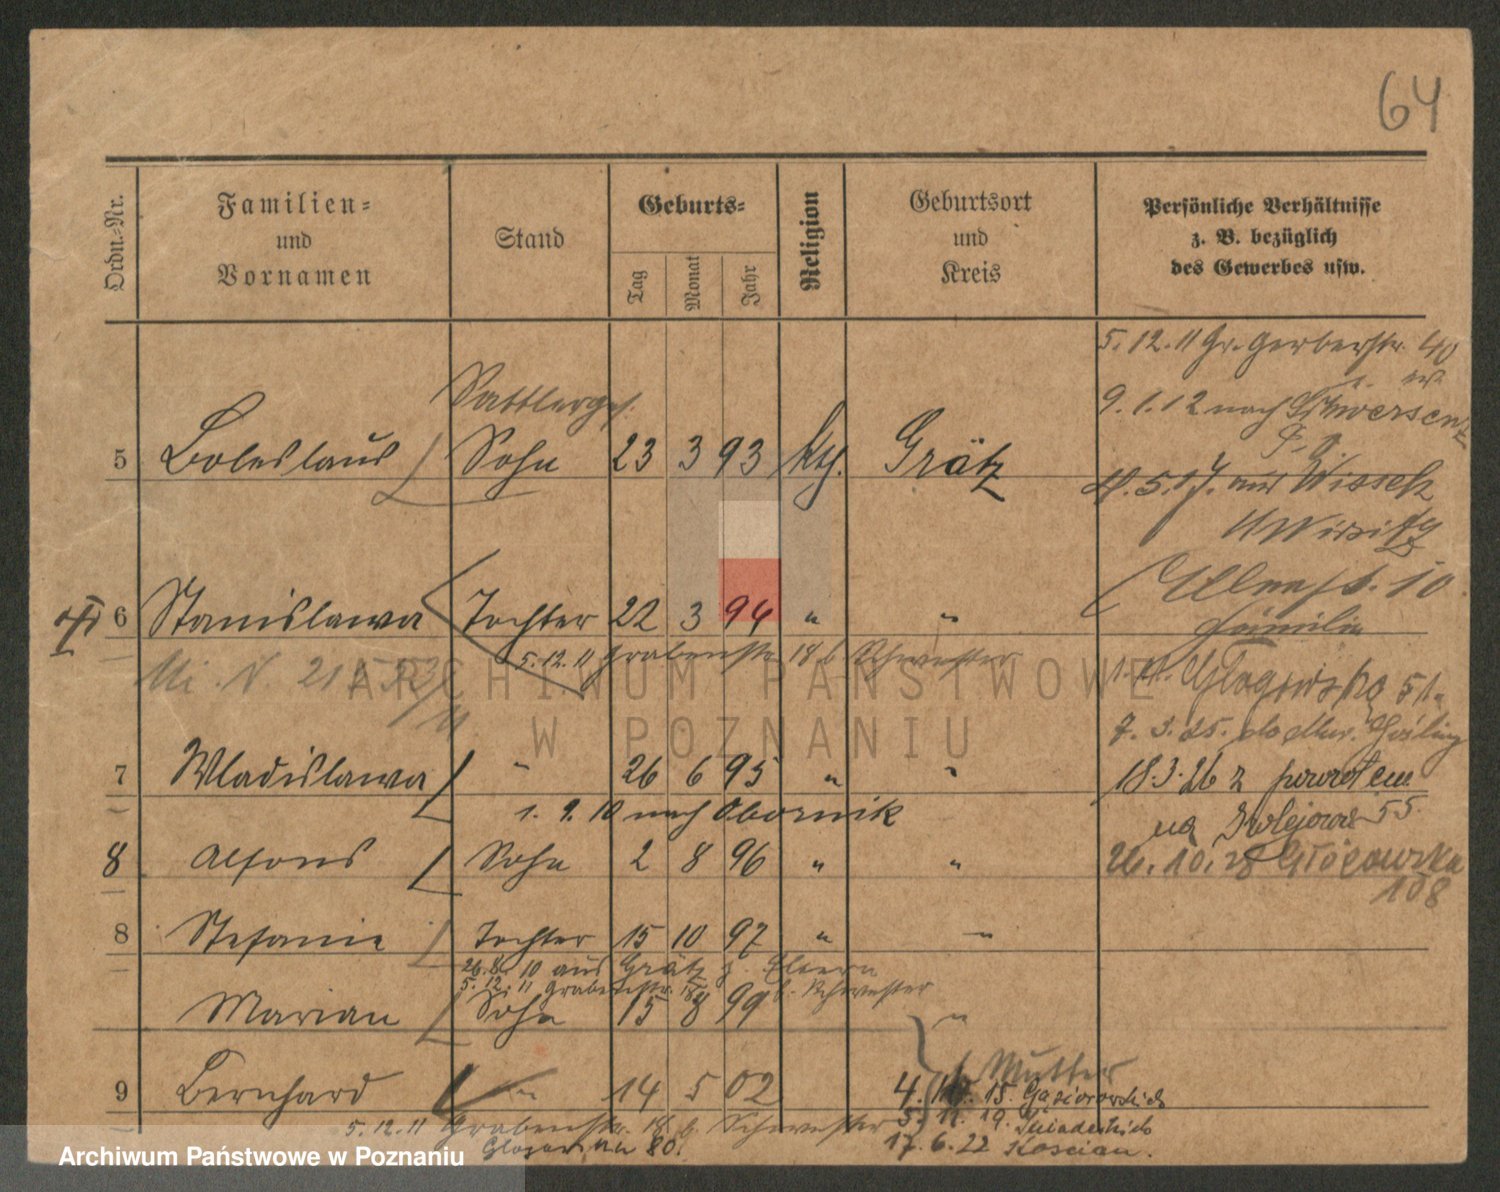 64
Ordn.-Nr.
Familien-
und
Vornamen
Stand
Geburts-
Tag
Monat
Jahr
Religion
Geburtsort
und
Kreis
Persönliche Verhältnisse
z. B. bezüglich
des Gewerbes usw.
5.12.11 Gr. Gerberstr. 40
Sattlerges.
9.1.12 nach Schwersenz
5 Boleslaus Sohn 23 3 93 kth. Grätz
aus Wissek
Wirsitz
10
6 Stanislawa Tochter 22 3 94 " "
Familie
5.12.11 Grabenstr. 18 b. Schwester
Glogowska 51a
7.3.25. do
7 Wladislawa " 26 6 95 " " 18.3.26 z powrotem
1.9.10 nach Obornik
na Kolejowa 55
8 Alfons Sohn 2 8 96 " " 26.10.28 Głogowska
108
8 Stefanie Tochter 15 10 97 " "
26.8.10 aus Grätz z. Eltern
5.12.11 Grabenstr. 18 b. Schwester
Marian Sohn 15 8 99 "
Mutter
9 Bernhard " 14 5 02 4. 15. Gąsiorowskich
5.12.11 Grabenstr. 18 b. Schwester 5.11.19. Śniadeckich
80. 17.6.22 Kościan.
ARCHIWUM PAŃSTWOWE
W POZNANIU
Archiwum Państwowe w Poznaniu